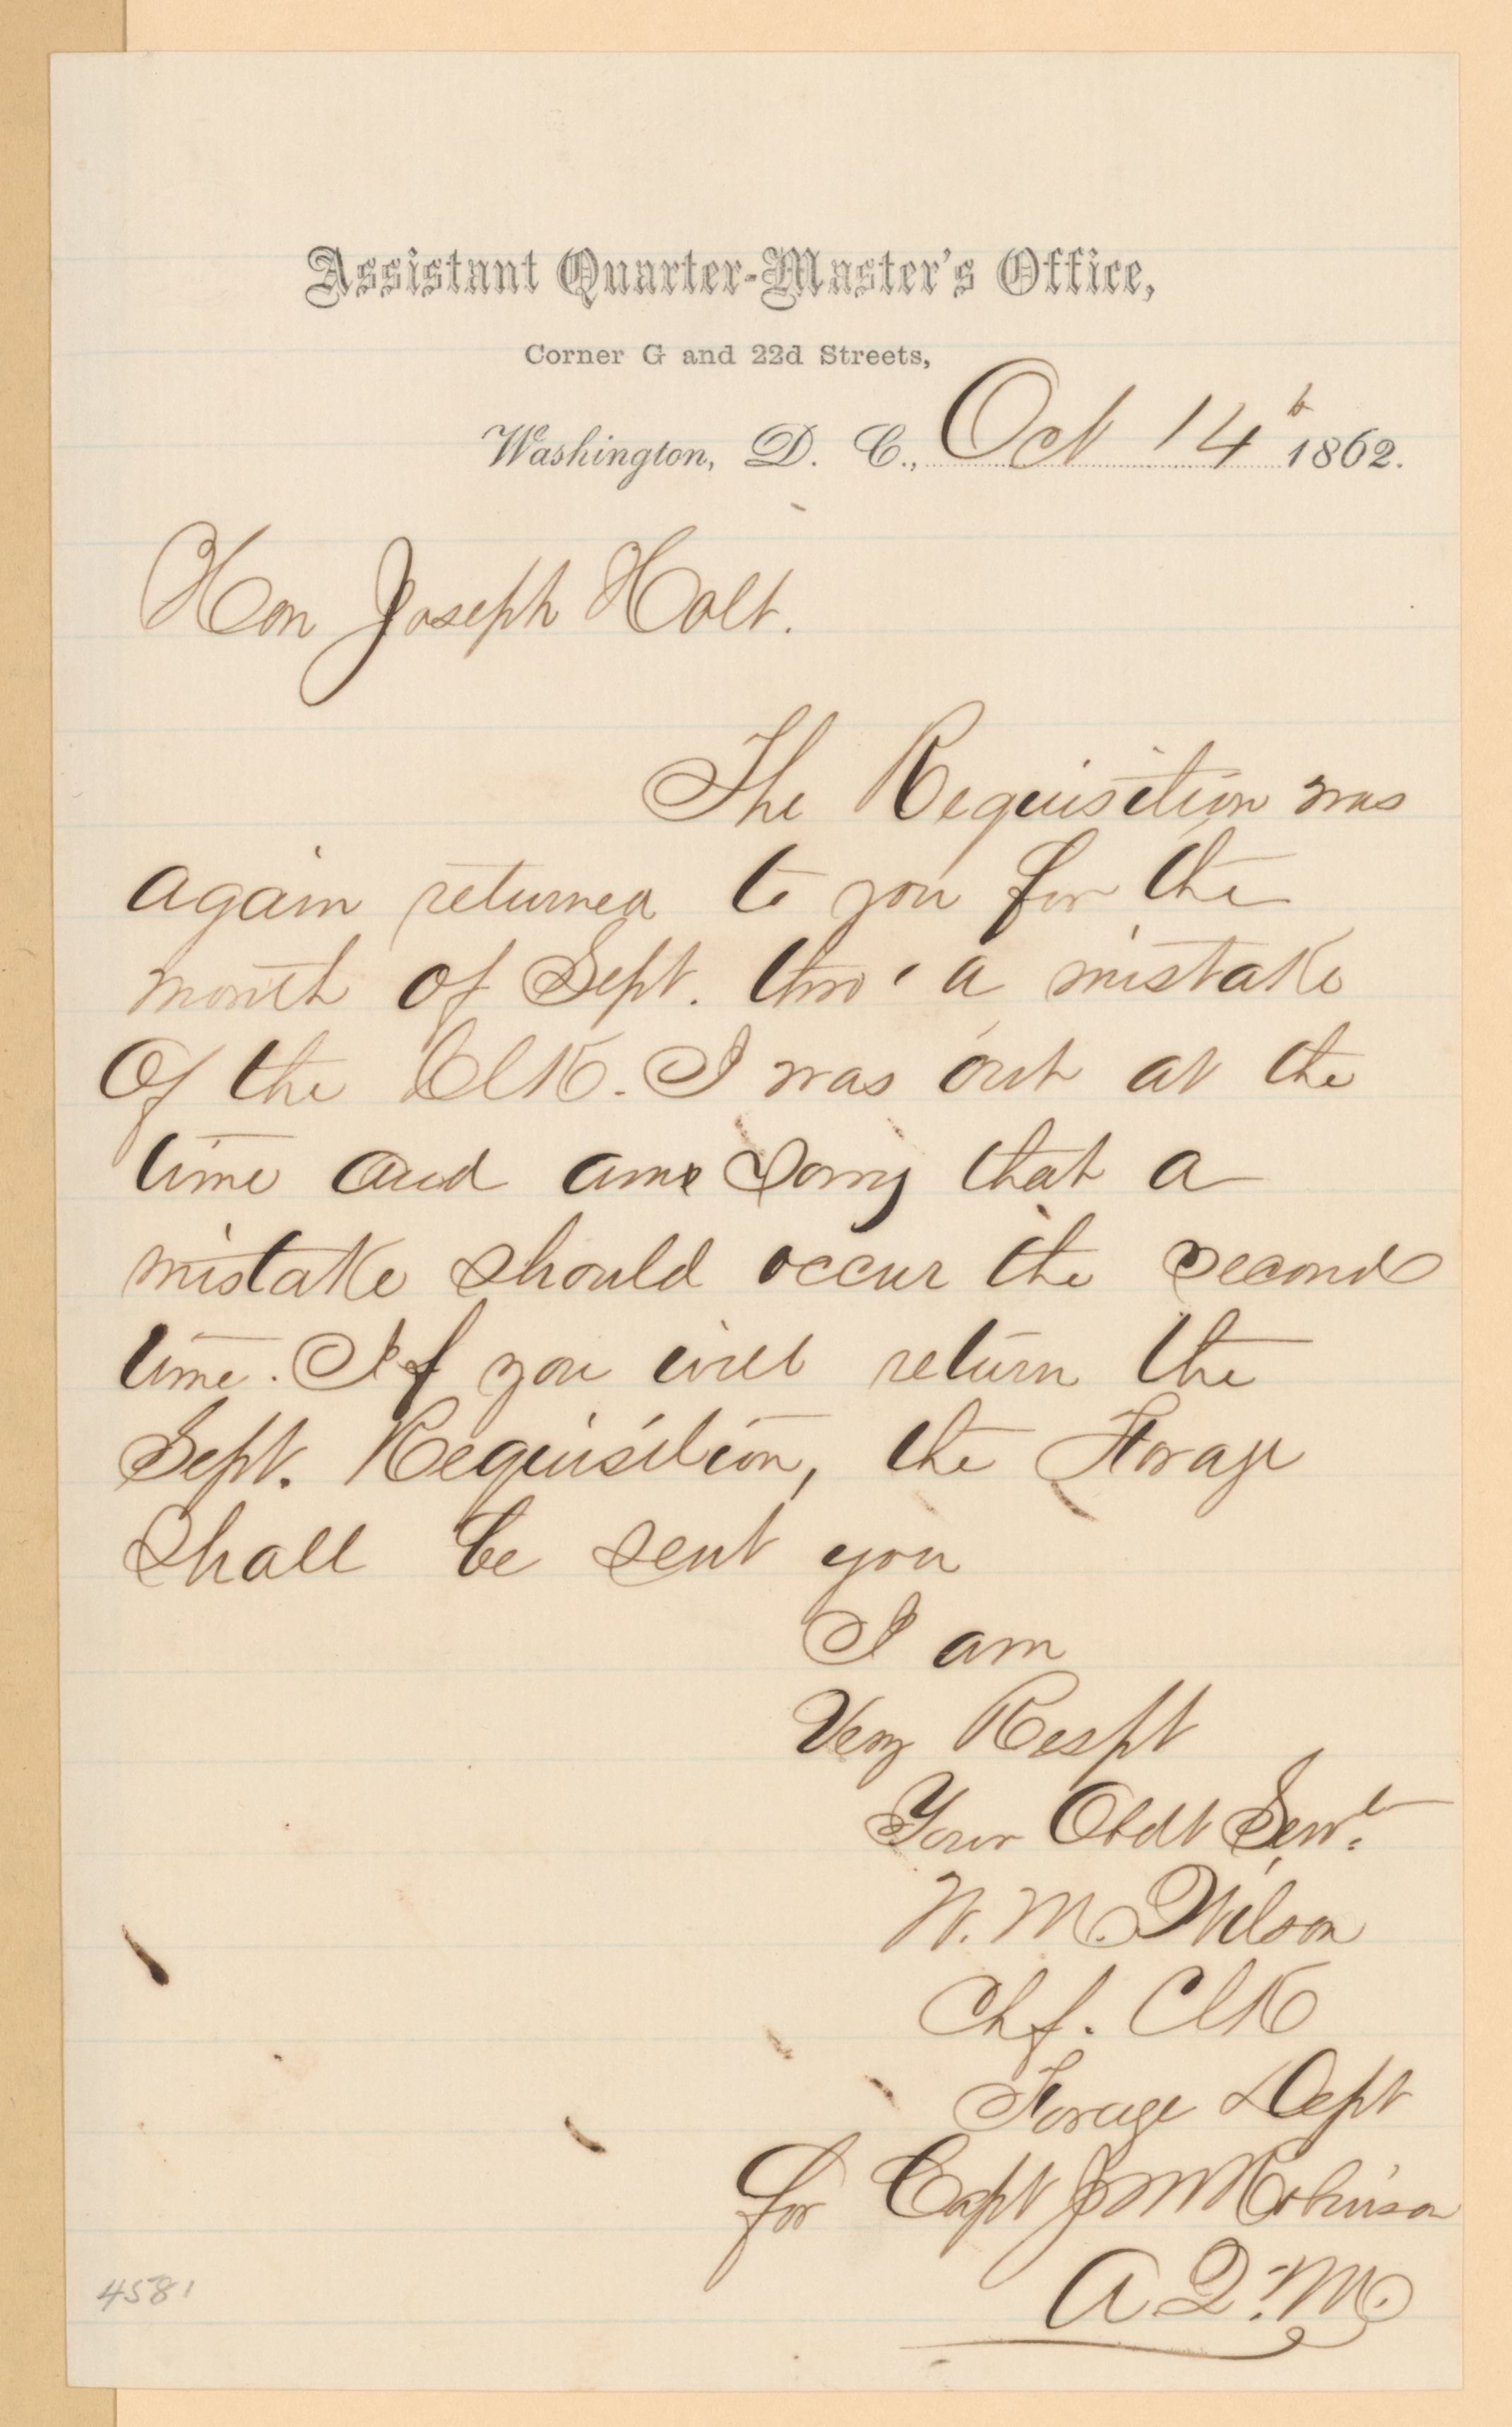 Assistant Quarter-Master's Office,
Corner G and 22d Streets,
Washington, D. C., Oct 14th 1862.
Hon Joseph Holt.
The Requisition was
again returned to you for the
month of Sept. thro' a mistake
of the Clk. I was out at the
time and am sorry that a
mistake should occur the second
time. If you will return the
Sept. Requisition, the Forage
shall be sent you
I am
Very Respt
Your Obdt Servt.
W. M. Wilson
Chf. Clk
Forage Dept
for Capt J M Robinson
A. Q. M.
4581